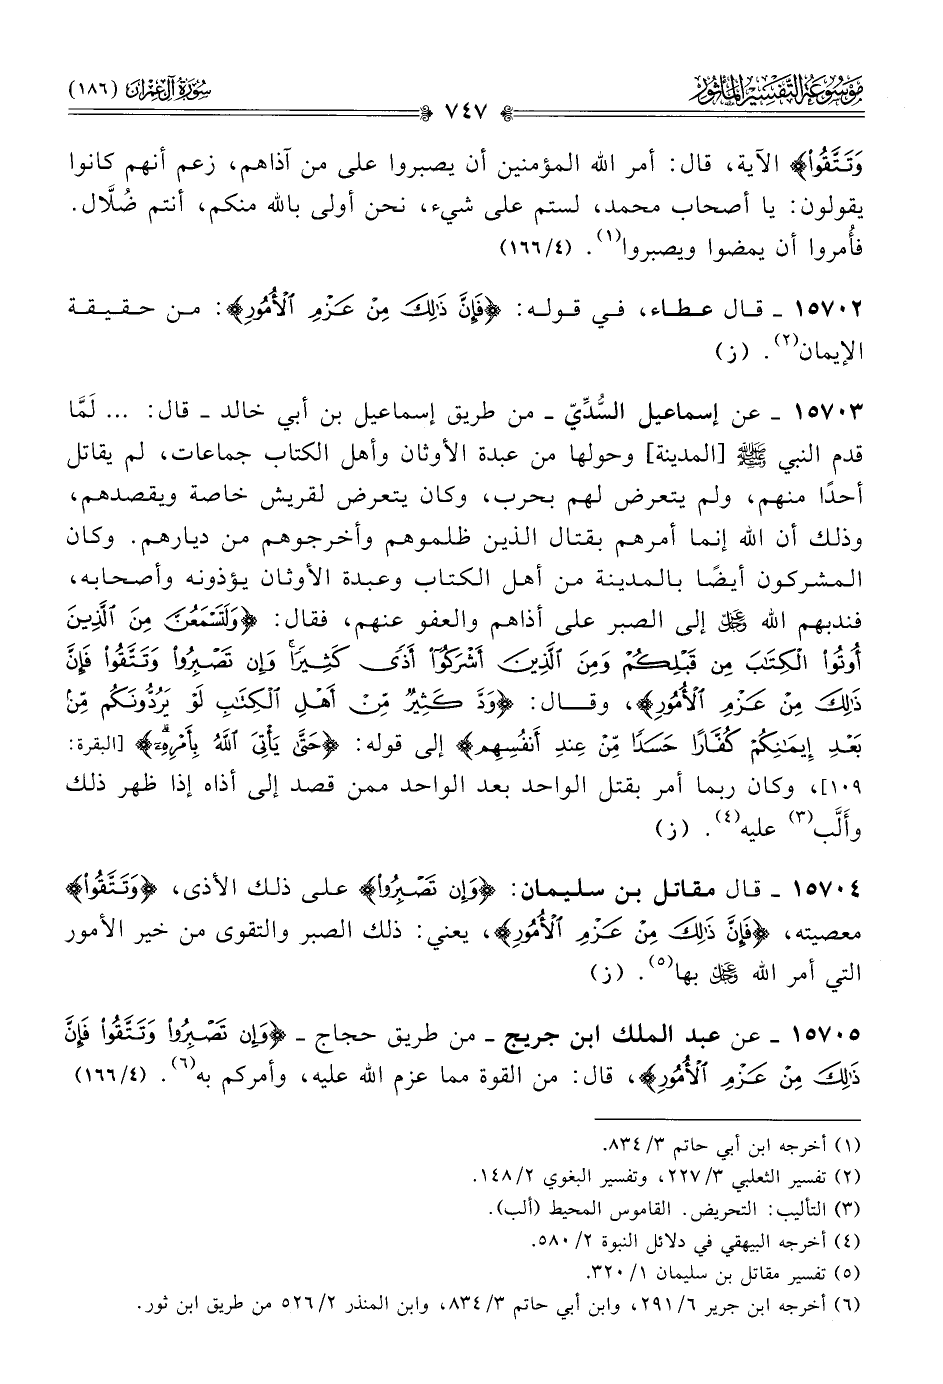 موسوعة التفسير المأثور
سورة آل عمران (١٨٦)
٧٤٧
وَتَتَّقُوا﴾ الآية، قال: أمر الله المؤمنين أن يصبروا على من آذاهم، زعم أنهم كانوا
يقولون: يا أصحاب محمد، لستم على شيء، نحن أولى بالله منكم، أنتم ضُلَّال.
فأُمروا أن يمضوا ويصبروا(١). (٤/ ١٦٦)
١٥٧٠٢ ـ قال عطاء، في قوله: ﴿فَإِنَّ ذَٰلِكَ مِنْ عَزْمِ ٱلْأُمُورِ﴾: من حقيقة
الإيمان(٢). (ز)
١٥٧٠٣ ـ عن إسماعيل السُّدِّيّ ـ من طريق إسماعيل بن أبي خالد ـ قال: ... لَمَّا
قدم النبي ﷺ [المدينة] وحولها من عبدة الأوثان وأهل الكتاب جماعات، لم يقاتل
أحدًا منهم، ولم يتعرض لهم بحرب، وكان يتعرض لقريش خاصة ويقصدهم،
وذلك أن الله إنما أمرهم بقتال الذين ظلموهم وأخرجوهم من ديارهم. وكان
المشركون أيضًا بالمدينة من أهل الكتاب وعبدة الأوثان يؤذونه وأصحابه،
فندبهم الله ﷿ إلى الصبر على أذاهم والعفو عنهم، فقال: ﴿وَلَتَسْمَعُنَّ مِنَ ٱلَّذِينَ
أُوتُوا۟ ٱلْكِتَٰبَ مِن قَبْلِكُمْ وَمِنَ ٱلَّذِينَ أَشْرَكُوٓا۟ أَذًى كَثِيرًا ۚ وَإِن تَصْبِرُوا۟ وَتَتَّقُوا۟ فَإِنَّ
ذَٰلِكَ مِنْ عَزْمِ ٱلْأُمُورِ﴾، وقال: ﴿وَدَّ كَثِيرٌ مِّنْ أَهْلِ ٱلْكِتَٰبِ لَوْ يَرُدُّونَكُم مِّنۢ
بَعْدِ إِيمَٰنِكُمْ كُفَّارًا حَسَدًا مِّنْ عِندِ أَنفُسِهِم﴾ إلى قوله: ﴿حَتَّىٰ يَأْتِىَ ٱللَّهُ بِأَمْرِهِۦٓ ۗ﴾ [البقرة:
١٠٩]، وكان ربما أمر بقتل الواحد بعد الواحد ممن قصد إلى أذاه إذا ظهر ذلك
وأَلَّب(٣) عليه(٤). (ز)
١٥٧٠٤ ـ قال مقاتل بن سليمان: ﴿وَإِن تَصْبِرُوا۟﴾ على ذلك الأذى، ﴿وَتَتَّقُوا۟﴾
معصيته، ﴿فَإِنَّ ذَٰلِكَ مِنْ عَزْمِ ٱلْأُمُورِ﴾، يعني: ذلك الصبر والتقوى من خير الأمور
التي أمر الله ﷿ بها(٥). (ز)
١٥٧٠٥ ـ عن عبد الملك ابن جريج ـ من طريق حجاج ـ ﴿وَإِن تَصْبِرُوا۟ وَتَتَّقُوا۟ فَإِنَّ
ذَٰلِكَ مِنْ عَزْمِ ٱلْأُمُورِ﴾، قال: من القوة مما عزم الله عليه، وأمركم به(٦). (٤/ ١٦٦)
(١) أخرجه ابن أبي حاتم ٣/ ٨٣٤.
(٢) تفسير الثعلبي ٣/ ٢٢٧، وتفسير البغوي ٢/ ١٤٨.
(٣) التأليب: التحريض. القاموس المحيط (ألب).
(٤) أخرجه البيهقي في دلائل النبوة ٢/ ٥٨٠.
(٥) تفسير مقاتل بن سليمان ١/ ٣٢٠.
(٦) أخرجه ابن جرير ٦/ ٢٩١، وابن أبي حاتم ٣/ ٨٣٤، وابن المنذر ٢/ ٥٢٦ من طريق ابن ثور.